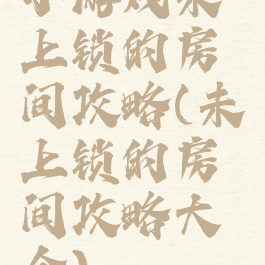 小游戏未
上锁的房
间攻略(未
上锁的房
间攻略大
全)